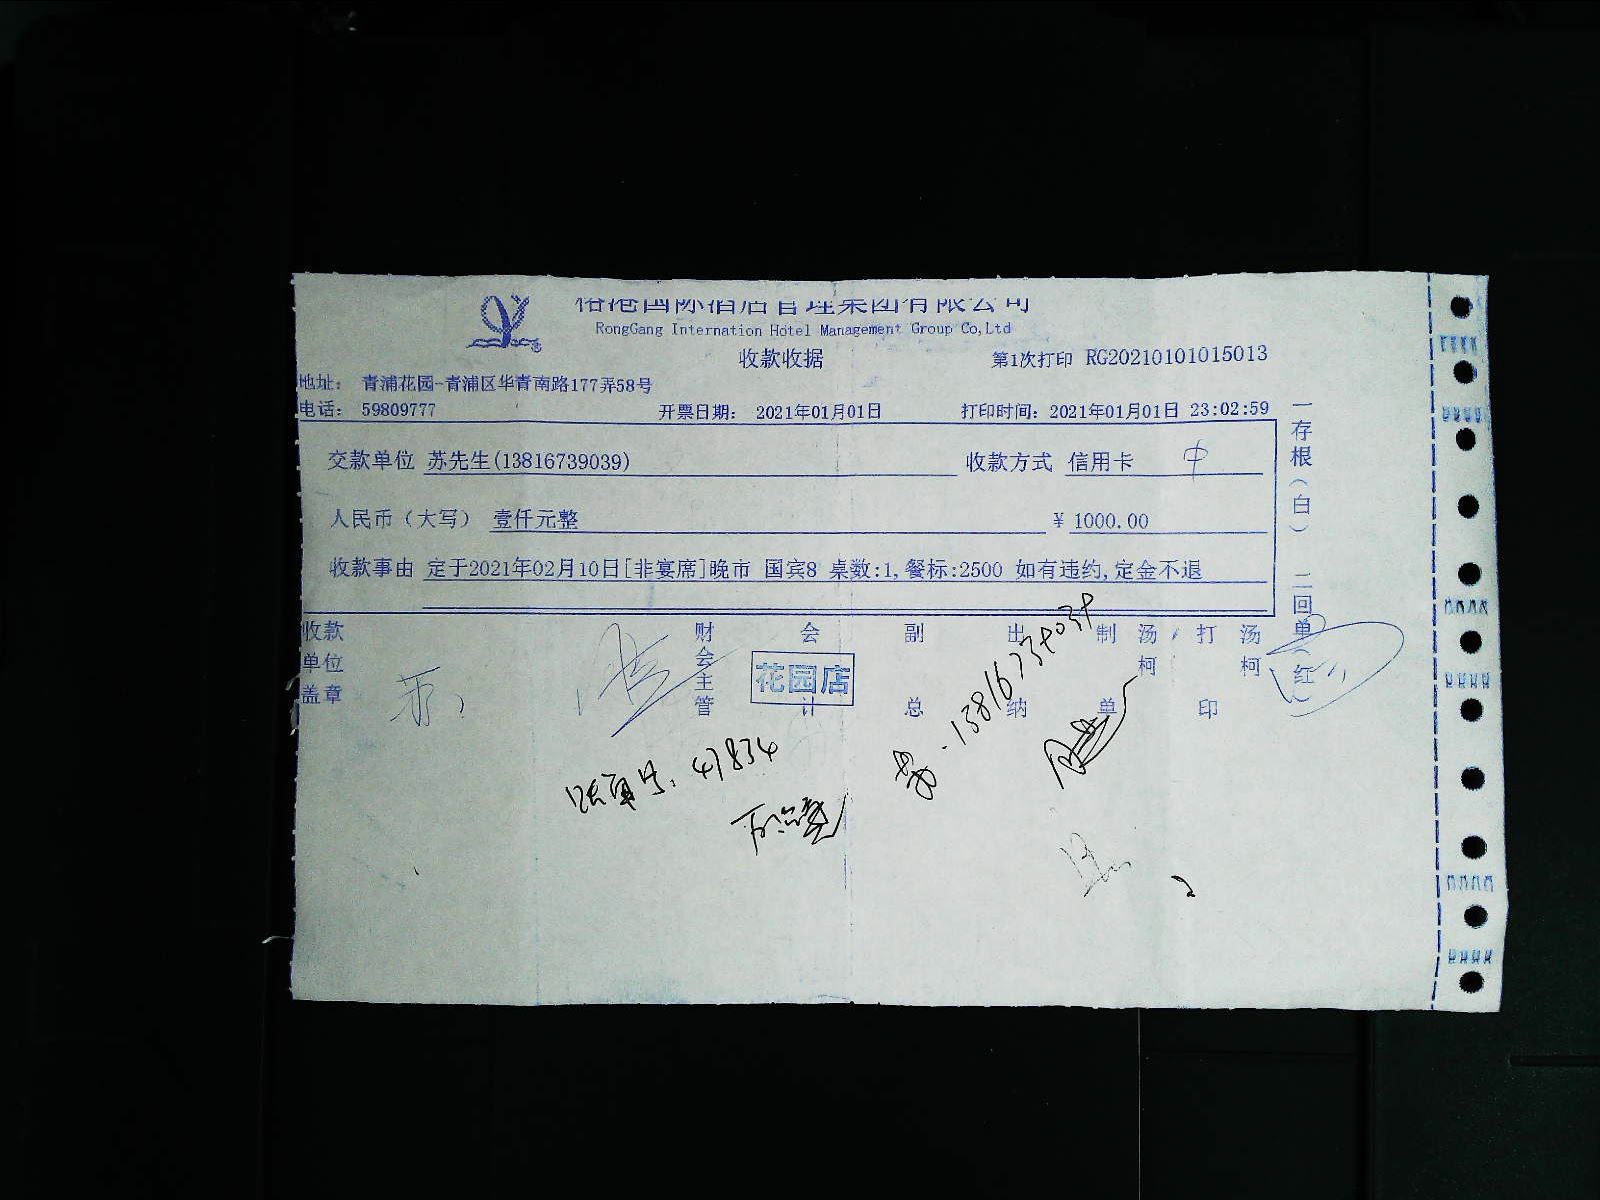 国际酒店管理集团有限公司
RongGang Internation Hotel Management Group Co,Ltd
收款收据
第1次打印 RG20210101015013
地址： 青浦花园-青浦区华青南路177弄58号
电话： 59809777 开票日期： 2021年01月01日 打印时间：2021年01月01日 23:02:59
交款单位 苏先生(13816739039) 收款方式 信用卡 中
人民币（大写） 壹仟元整 ￥ 1000.00
收款事由 定于2021年02月10日[非宴席]晚市 国宾8 桌数:1,餐标:2500 如有违约,定金不退
一存根（白） 二回单（红）
收款单位盖章 财会主管 会计 副总 出纳 制单 汤柯 打印 汤柯
花园店
苏
苏.13816739039
47834